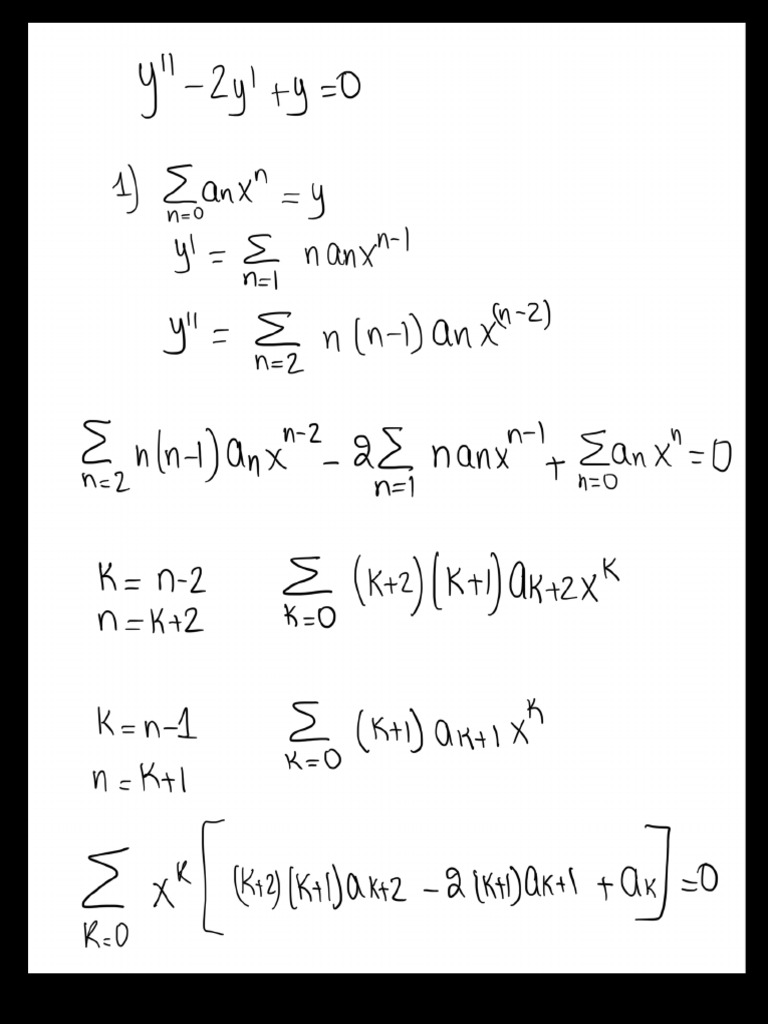 y'' - 2y' + y = 0
1) ∑_{n=0} a_n x^n = y
y' = ∑_{n=1} n a_n x^{n-1}
y'' = ∑_{n=2} n(n-1) a_n x^{(n-2)}
∑_{n=2} n(n-1) a_n x^{n-2} - 2∑_{n=1} n a_n x^{n-1} + ∑_{n=0} a_n x^n = 0
K = n-2    ∑_{K=0} (K+2)(K+1) a_{K+2} x^K
n = K+2
K = n-1    ∑_{K=0} (K+1) a_{K+1} x^K
n = K+1
∑_{K=0} x^K [(K+2)(K+1) a_{K+2} - 2(K+1) a_{K+1} + a_K] = 0